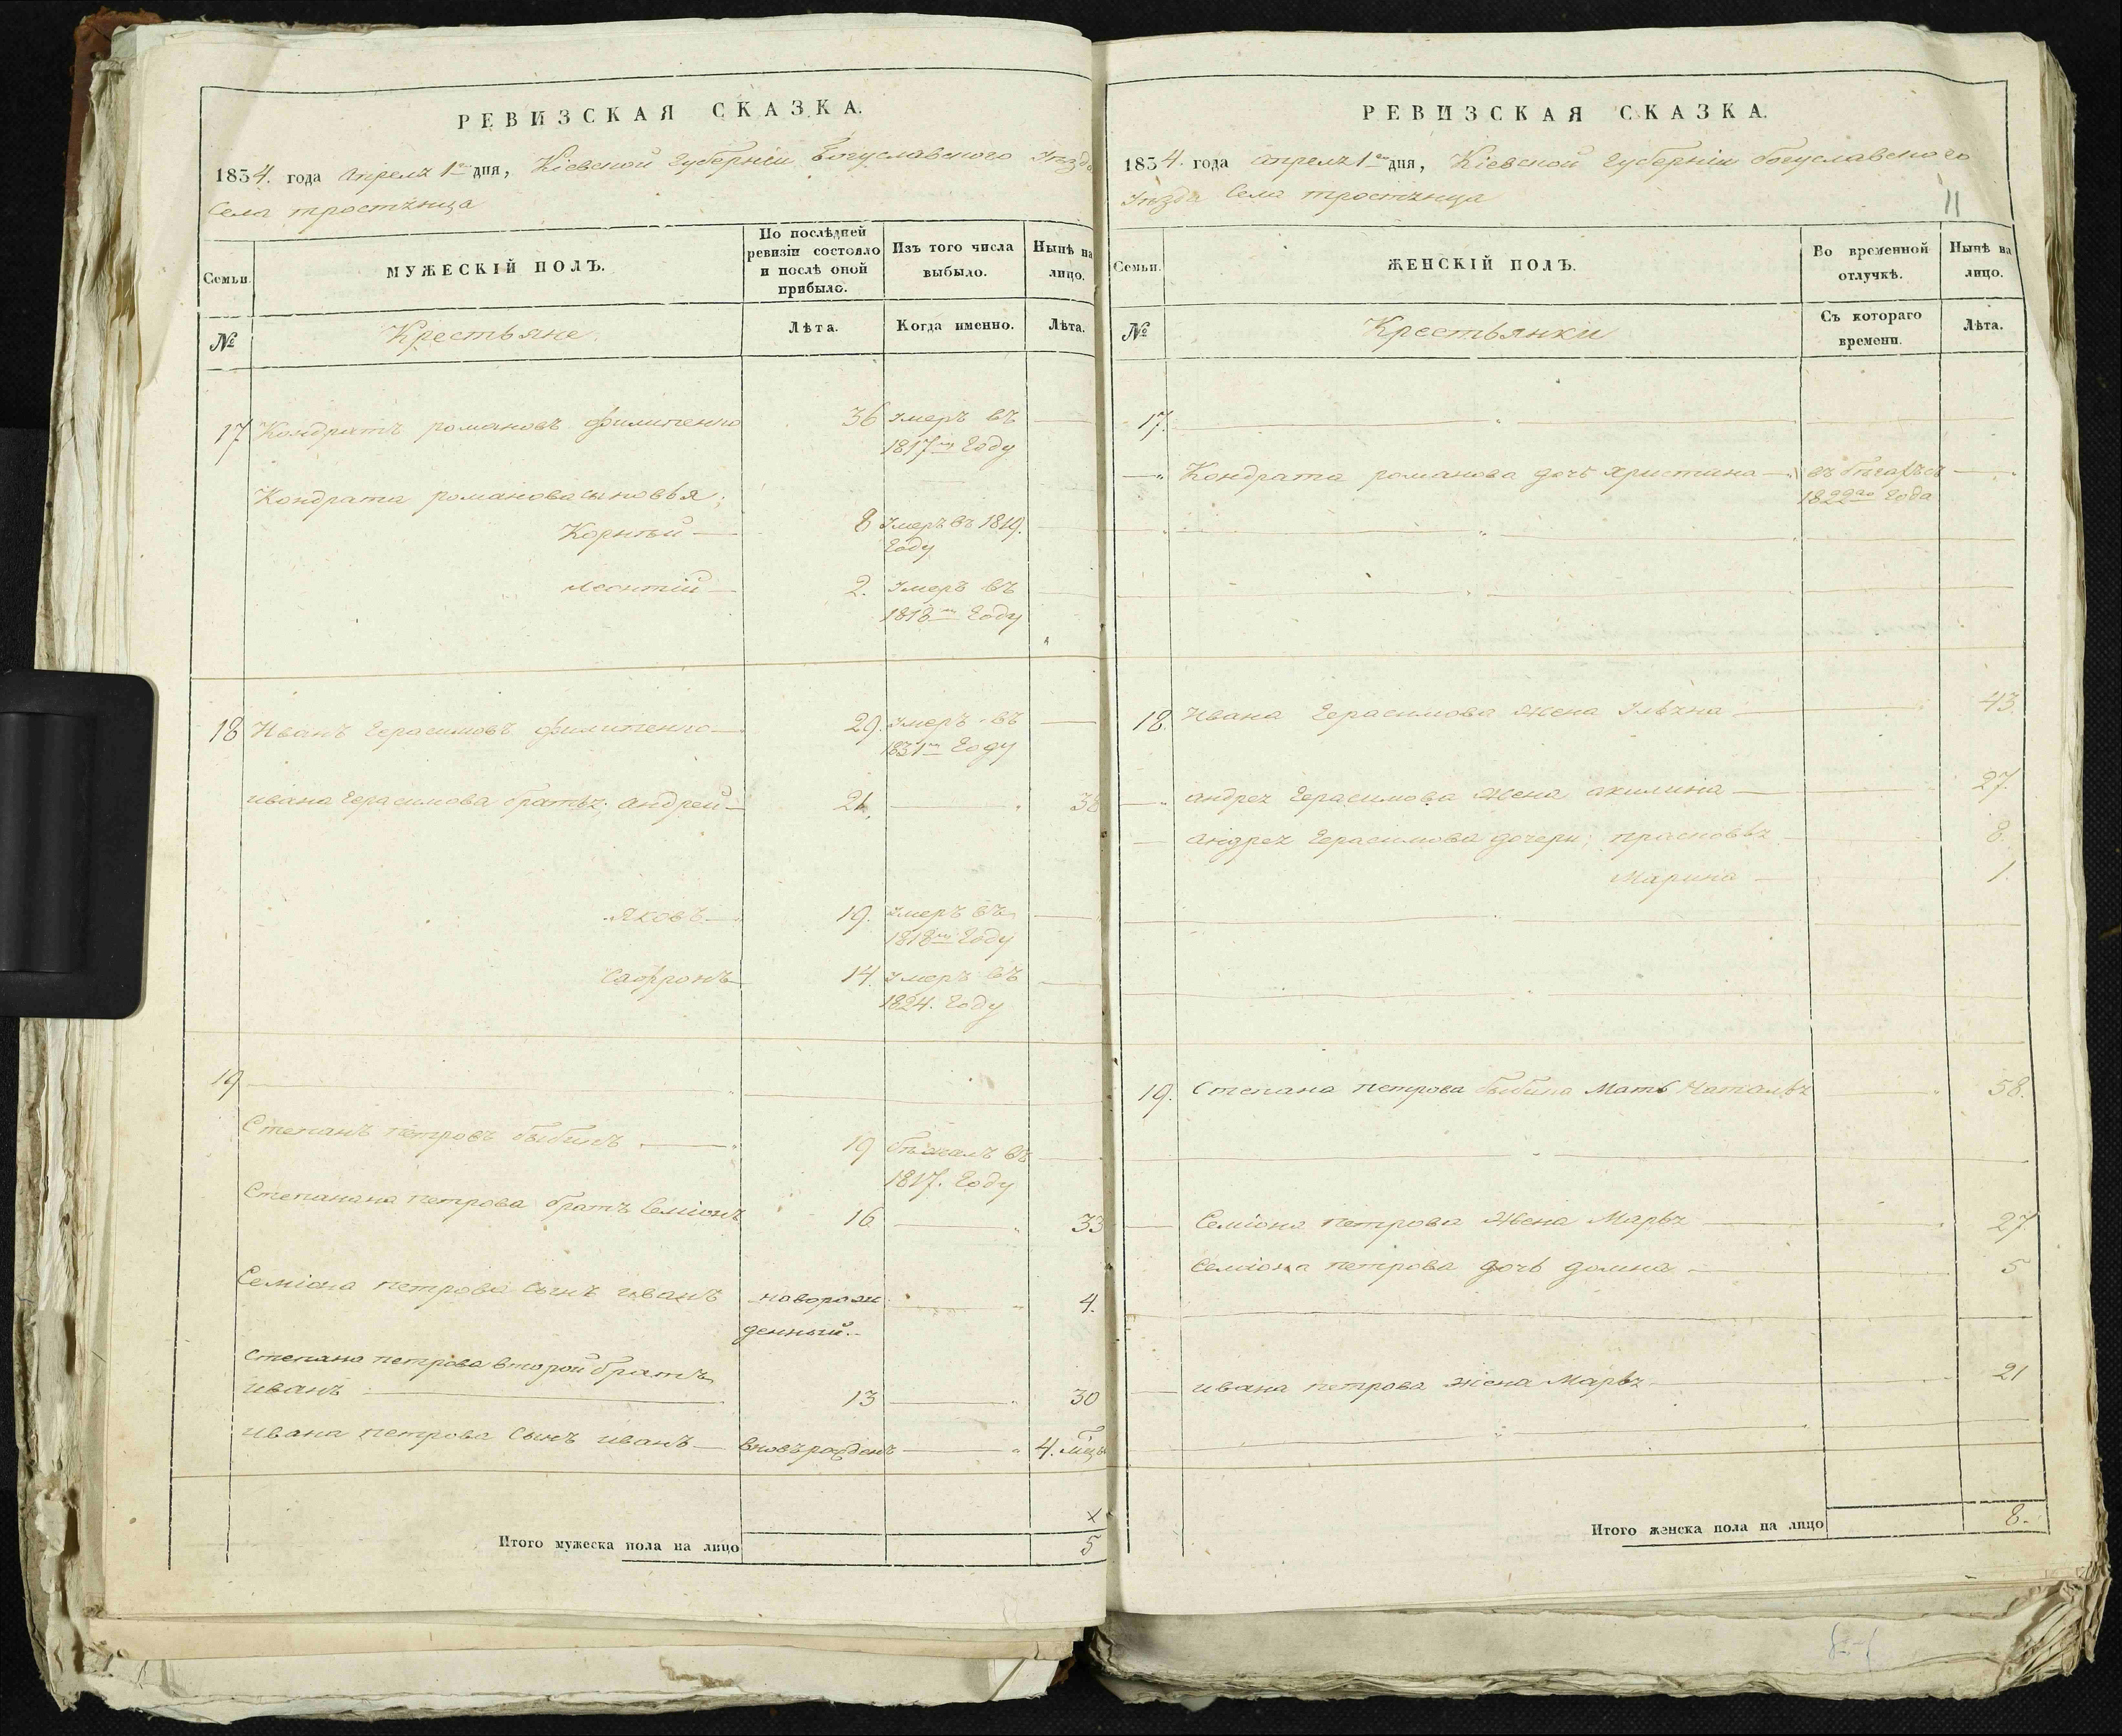 РЕВИЗСКАЯ СКАЗКА.
1834. года Апреля 1го дня, Кіевской Губерніи Богуславского Уезда
Села тростянца
Семьи.
МУЖЕСКІЙ ПОЛЪ.
По послѣдней ревизіи состояло и послѣ оной прибыло.
Изъ того числа выбыло.
Нынѣ на лицо.
№
Крестьяне
Лѣта.
Когда именно.
Лѣта.
17 Кондратъ романовъ филипенко 36 Умеръ въ
1817м Году
Кондрата романова сыновья;
Корнѣй 8 Умеръ въ 1819.
Году
леонтій 2. Умеръ въ
1818м Году
18 Иванъ Герасимовъ филипенко 29. Умеръ въ
1831м Году
ивана Герасимова братья; андрей 21, 38
Яковъ 19. Умеръ въ
1818м Году
Сафронъ 14. Умеръ въ
1824. Году
19
Степанъ петровъ быбикъ 19 бѣжалъ въ
1817. Году
Степанана петрова братъ Семіонъ 16 33
Семіона петрова сынъ иванъ новорож
денный. 4.
Степана петрова второй братъ
иванъ 13 30
ивана петрова сынъ иванъ вновърожденъ 4. мѣцы
Итого мужеска пола на лицо 5
РЕВИЗСКАЯ СКАЗКА.
1834. года апреля 1го дня, Кіевской Губерніи богуславского
Уезда Села тростянца
11
Семьи.
ЖЕНСКІЙ ПОЛЪ.
Во временной отлучкѣ.
Нынѣ на лицо.
№
Крестьянки
Съ котораго времени.
Лѣта.
17.
Кондрата романова дочь христина въ бѣгахъ съ
1822го Года
18. Ивана Герасимова жена Ульяна 43.
андрея Герасимова жена акилина 27.
андрея Герасимова дочери; прасковья 8.
Марина 1
19. Степана петрова Мать Наталья 58.
Семіона петрова жена Марья 27
Семіона петрова дочь домна 5
ивана петрова жена Марья 21
Итого женска пола на лицо 8.